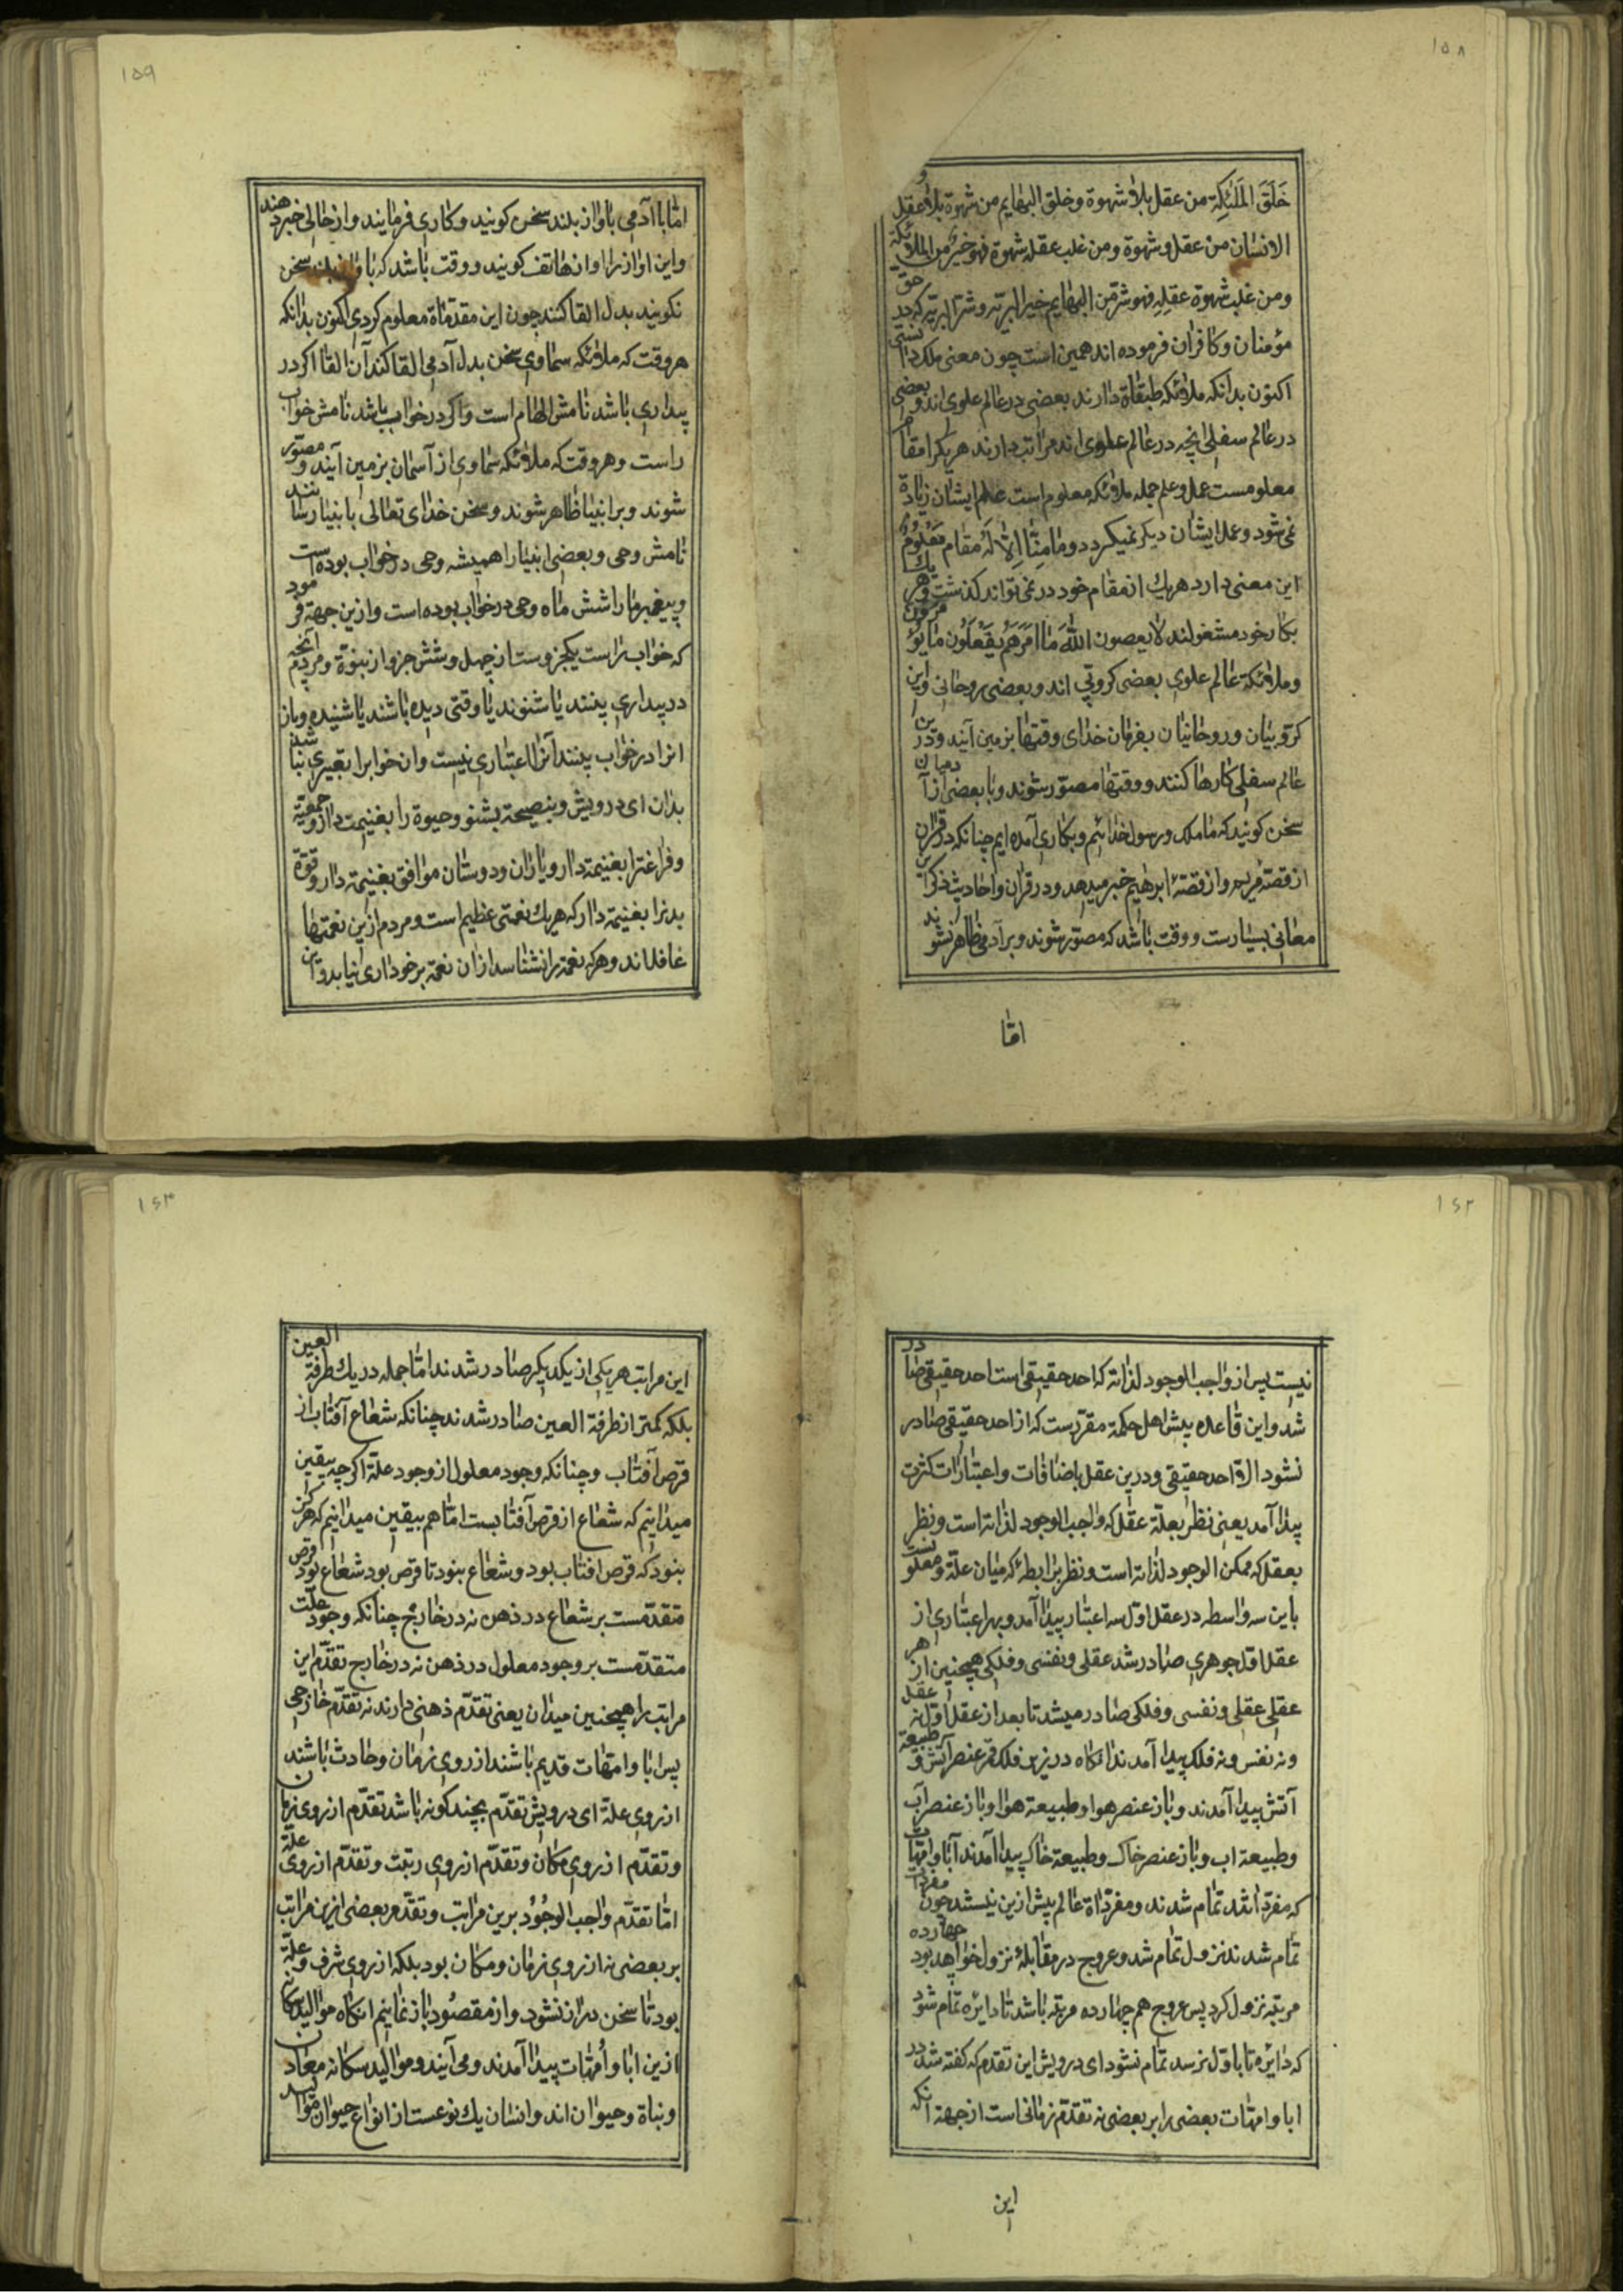 ۱۵۸
خَلَقَ المَلَئِكِة من عقل بلا شهوة و خلق البهايم من شهوة بلا عقل و
الانسان من عقل و شهوة و من غلب عقله شهوة فهو خير من الملائكة
و من غلب شهوة عقلِهِ فهو شرّ من البهايم خير البريّه و شرّ البريّه كه در حق
مؤمنان و كافران فرموده اند همين است چون معنى ملك دانستى
اكنون بدانكه ملائكه طبقاة دارند بعضى در عالم علوى اند و بعضى
در عالم سفلى انچه در عالم علوى اند مراتب دارند هر يكرا مقام
معلومست عمل و علم جمله ملائكه معلوم است علم ايشان زيادة
نمى شود و عمل ايشان ديكر نميكردد و ما مِنّا اِلّا لَهُ مقام مَعْلُومٌ
اين معنى دارد هريك از مقام خود در نمى تواند كذشت و هر يك
بكار خود مشغولند لا يعصون اللهَ ما اَمَرَهُم يَفْعَلُون ما يُؤمرون
و ملائكة عالم علوى بعضى كروبى اند و بعضى روحانى و اين
كرّوبيان و روحانيان بفرمان خداى وقتها بزمين آيند و درين
عالم سفلى كارها كنند و وقتها مصوّر شوند و با بعضى از آدميان
سخن كويند كه ما ملك و رسول خدائيم و بكارى آمده ايم چنانكه در قران
از قصّهٔ مريم و از قصّهٔ ابرهيم خبر ميدهد و در قران و احاديث ذكر اين
معانى بسيارست و وقت باشد كه مصوّر شوند و بر آدمى ظاهر نشوند
امّا
۱۵۹
امّا با آدمى باواز بلند سخن كويند و كارى فرمايند و از حالى خبر دهند
و اين اواز را اواز هاتف كويند و وقت باشد كه باواز بلند سخن
نكويند بدل القا كنند چون اين مقدّماة معلوم كردى اكنون بدانكه
هر وقت كه ملائكه سماوى سخن بدل آدمى القا كند آن القا اكر در
بيدارى باشد نامش الهام است و اكر در خواب باشد نامش خواب
راست و هر وقت كه ملائكه سماوى از آسمان بزمين آيند و مصوّر
شوند و بر انبيا ظاهر شوند و سخن خداى تعالى بانبيا رسانند
نامش وحى و بعضى انبيا را هميشه وحى در خواب بوده است
و پيغمبر ما را شش ماه وحى در خواب بوده است و ازين جهة فرمود
كه خواب راست يكجزوست از چهل و شش جزو از نبوّة و مردم آنچه
در بيدارى بينند يا شنوند يا وقتى ديده باشند يا شنيده و باز
انرا در خواب بينند آنرا اعتبارى نيست و ان خوابرا تعبيرى نباشد
بدان اى درويش و بنصيحة بشنو و حيوة را بغنيمت دار و جمعيّة
و فراغترا بغنيمة دار و ياران و دوستان موافق بغنيمة دار و قوّة
بدنرا بغنيمة دار كه هريك نعمتى عظيم است و مردم ازين نعمتها
غافل اند و هركه نعمة را نشناسد از ان نعمة برخوردارى نيابد و اين
۱۶۲
نيست پس از واجب الوجود لذاته كه احد حقيقى است احد حقيقى صادر
شد و اين قاعده پيش اهل حكمة مقرّرست كه از احد حقيقى صادر
نشود الّا احد حقيقى و درين عقل باضافات و اعتبارات كثرت
پيدا آمد يعنى نظر بعلّة عقل كه واجب الوجود لذاته است و نظر
بعقل كه ممكن الوجود لذاته است و نظر برابطهٔ كه ميان علّة و معلولست
باين سه واسطه در عقل اوّل سه اعتبار پيدا آمد و بهر اعتبارى از
عقل اوّل جوهرى صادر شد عقلى و نفسى و فلكى همچنين از هر
عقلى عقلى و نفسى و فلكى صادر ميشد تا بعد از عقل اوّل نه عقل
و نه نفس و نه فلك پيدا آمدند انكاه در زير فلك قمر عنصر آتش و طبيعة
آتش پيدا آمدند و باز عنصر هوا و طبيعة هوا و باز عنصر آب
و طبيعة اب و باز عنصر خاك و طبيعة خاك پيدا آمدند آبا و امّهات
كه مفرداتند تمام شدند و مفرداة عالم پيش ازين نيستند چون مفردات
تمام شدند نزول تمام شد و عروج در مقابلهٔ نزول خواهد بود چهارده
مرتبه نزول كرد پس عروج هم چهارده مرتبه باشد تا دايره تمام شود
كه دايره تا باوّل نرسد تمام نشود اى درويش اين تقدم كه كفته شد در
ابا و امّهات بعضى را بر بعضى نه تقدّم زمانى است از جهة انكه
اين
۱۶۳
اين مراتب هر يكى از يكديكر صادر شدند امّا جمله در يك طرفة العين
بلكه كمتر از طرفة العين صادر شدند چنانكه شعاع آفتاب از
قرص آفتاب و چنانكه وجود معلول از وجود علّة اكرچه بيقين
ميدانيم كه شعاع از قرص آفتابست امّا هم بيقين ميدانيم كه هركز
نبود كه قرص افتاب بود و شعاع نبود تا قرص بود شعاع بود قرص
متقدّمست بر شعاع در ذهن نه در خارج چنانكه وجود علّت
متقدّمست بر وجود معلول در ذهن نه در خارج تقدّم اين
مراتب را همچنين ميدان يعنى تقدّم ذهنى دارند نه تقدّم خارجى
پس ابا و امّهات قديم باشند از روى زمان و حادث باشند
از روى علّة اى درويش تقدّم بچند كونه باشد تقدّم از روى زمان
و تقدّم از روى مكان و تقدّم از روى رتبت و تقدّم از روى علّة
امّا تقدّم واجب الوجُوُد برين مراتب و تقدّم بعضى ازين مراتب
بر بعضى نه از روى زمان و مكان بود بلكه از روى شرف و علّة
بود تا سخن دراز نشود و از مقصُود باز نمانيم انكاه مواليد سكانه
ازين ابا و اُمّهات پيدا آمدند و مى آيند و مواليد سكانه معادن
و نباة و حيوان اند و انسان يك نوعست از انواع حيوان مواليد